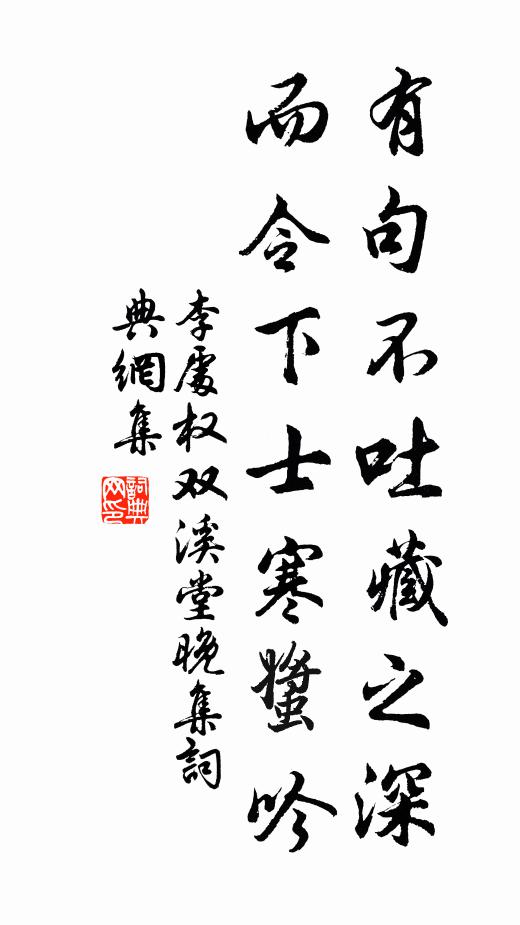 有句不吐藏之深
而令下士寒螀吟
李處权双溪堂晚集詞
典網集
詞典网印